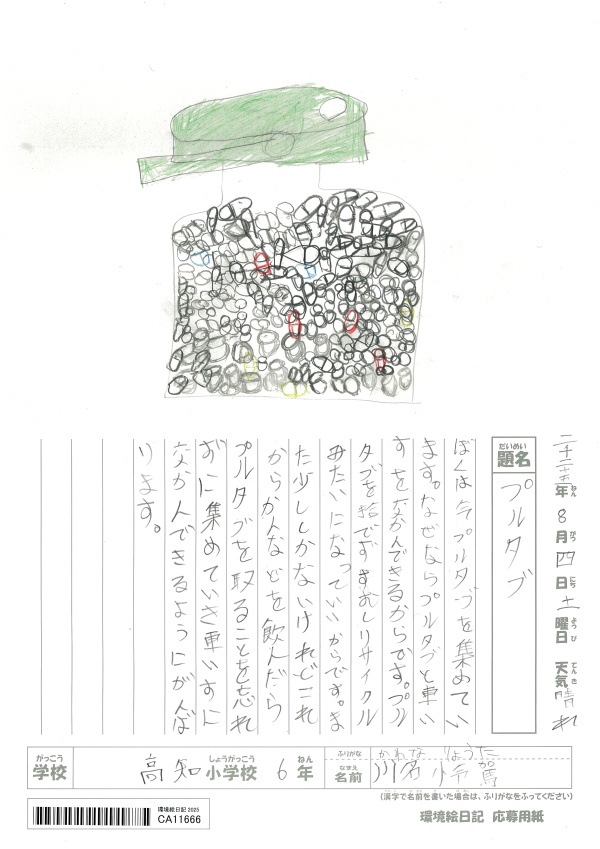 二千二十五年 8月 四日 土曜日 天気 晴れ
ねん がつ にち ようび てんき
だいめい
題名
プルタブ
ぼくは今プルタブを集めてい
ます。なぜならプルタブと車い
すを交かんできるからです。プル
タブを捨てずすむしリサイクル
みたいになっていいからです。ま
た少ししかないけれどこれ
からかんなどを飲んだら
プルタブを取ることを忘れ
ずに集めていき車いすに
交かんできるようにがんば
ります。
がっこう しょうがっこう ねん
学校 高知 小学校 6年
ふりがな かわな りょうた
なまえ
名前 川名
(漢字で名前を書いた場合は、ふりがなをふってください)
環境絵日記 応募用紙
環境絵日記 2025
CA11666